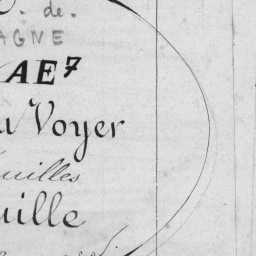 de.
AGNE
AE7
Voyer
uilles
uille